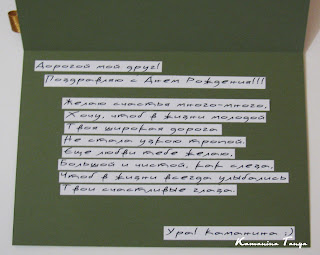 Дорогой мой друг!
Поздравляю с Днем Рождения!!!
Желаю счастья много-много,
Хочу, чтоб в жизни молодой
Твоя широкая дорога
Не стала узкою тропой.
Еще любви тебе желаю,
Большой и чистой, как слеза,
Чтоб в жизни всегда улыбались
Твои счастливые глаза.
Ура! Каманина :)
Kamanina Tanya